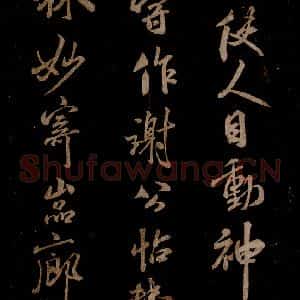 使人目動神
寄作謝公怡
妙寄品廊
Shufawang.CN